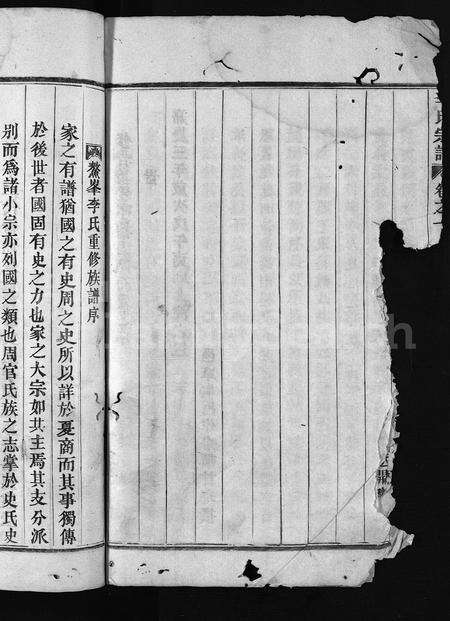 氏宗譜 卷之
鰲峯李氏重修族譜序
家之有譜猶國之有史周之史所以詳於夏商而其事獨傳
於後世者國固有史之力也家之大宗如共主焉其支分派
別而爲諸小宗亦列國之類也周官氏族之志掌於史氏史